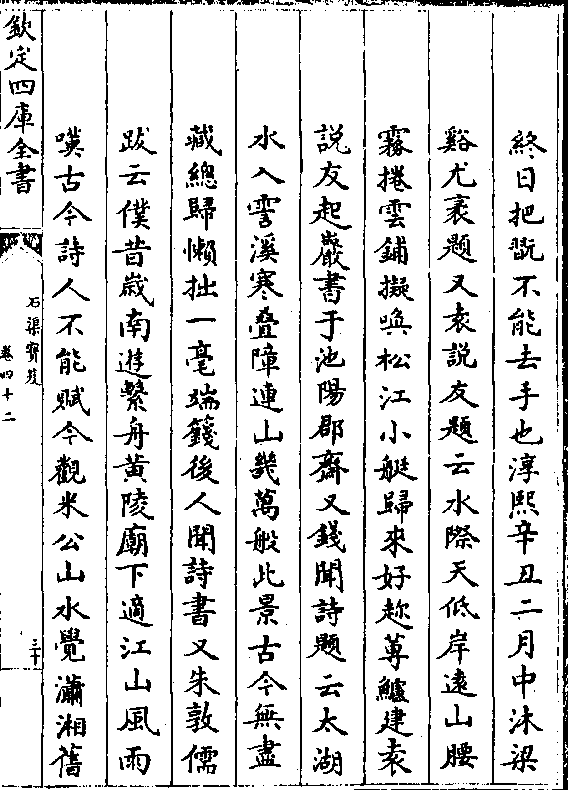 終日把翫不能去手也淳熙辛丑二月中沐梁
谿尤袤題又袁說友題云水際天低岸遠山腰
霧捲雲鋪擬喚松江小艇歸來好趂蓴鱸建袁
說友起巖書于池陽郡齋又錢聞詩題云太湖
水入霅溪寒叠障連山幾萬般此景古今無盡
藏總歸懶拙一毫端籛後人聞詩書又朱敦儒
跋云僕昔嵗南遊繫舟黄陵廟下適江山風雨
嘆古今詩人不能賦今觀米公山水覺瀟湘舊
欽定四庫全書
石渠寳笈
卷四十二
三十